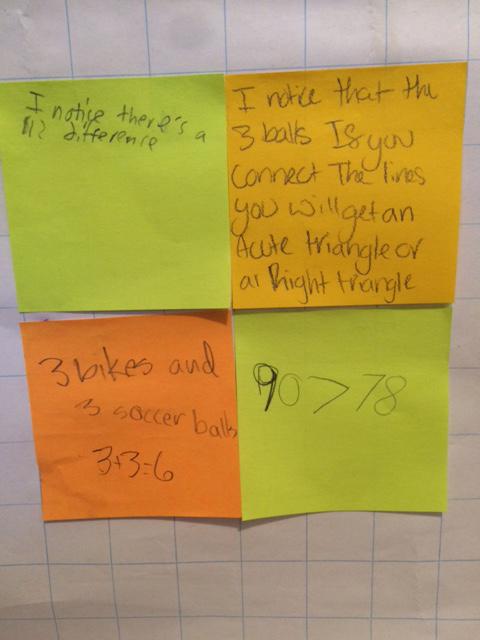 I notice there's a
$12 difference
I notice that the
3 balls If you
connect The lines
you will get an
Acute triangle or
a Right triangle
3 bikes and
3 soccer balls
3+3=6
90 > 78